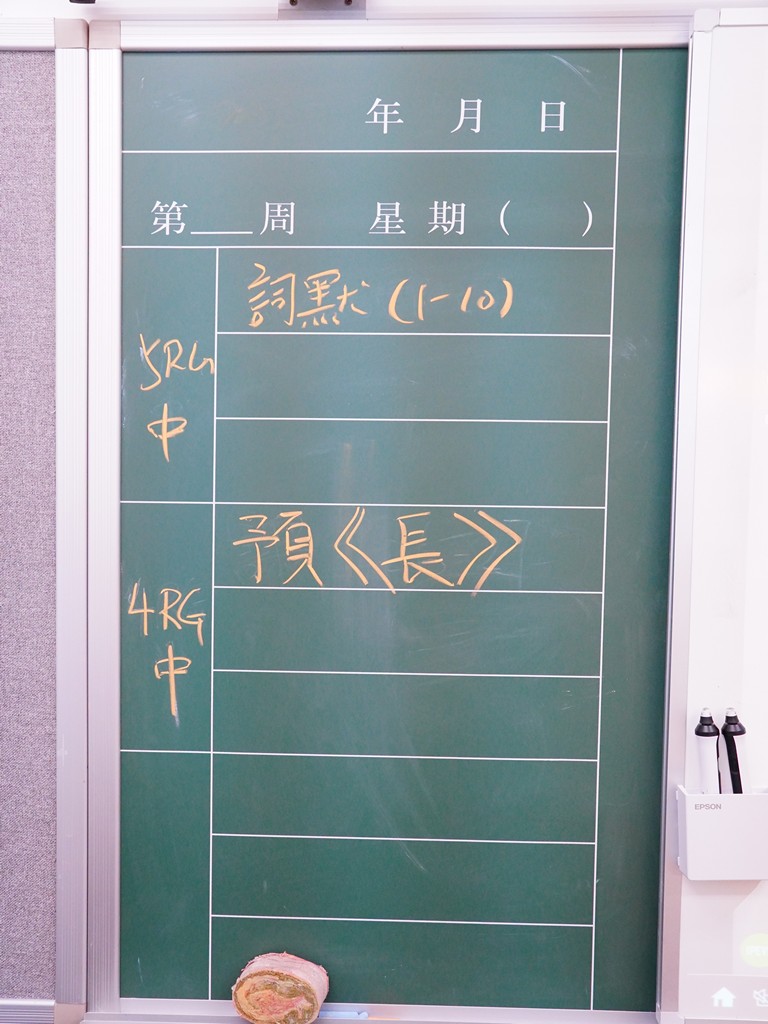 年 月 日
第___周 星期( )
詞默(1-10)
5RG
中
預《長》
4RG
中
EPSON